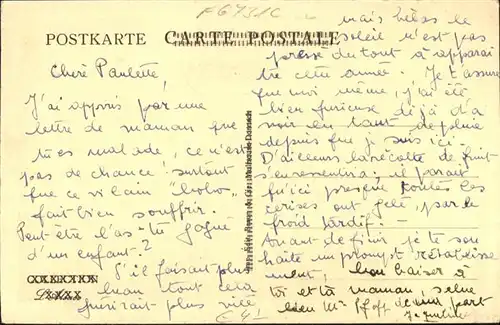 F6431C
POSTKARTE CARTE POSTALE
Chère Paulette,
J'ai appris par une
lettre de maman que
tu es malade, ce n'est
pas de chance, surtout
que ce vilain "bobo"
fait bien souffrir.
Peut-être l'as-tu gagné
d'un enfant?
S'il faisait plus
beau tout cela
guérirait plus vite
E4/-
mais hélas le
soleil n'est pas
pressé du tout à réapparaî
tre cette année. Je t'assure
que moi même, j'ai été
bien furieuse déjà d'a
voir eu tant de pluie
depuis que je suis ici.
D'ailleurs la récolte de fruit
s'en ressentira; il paraît
qu'ici presque toutes les
cerises ont gelé, par le
froid tardif.
Avant de finir je te sou
haite un prompt rétablisse
ment, bon baiser à
toi et ta maman,
bien Mr de ma part